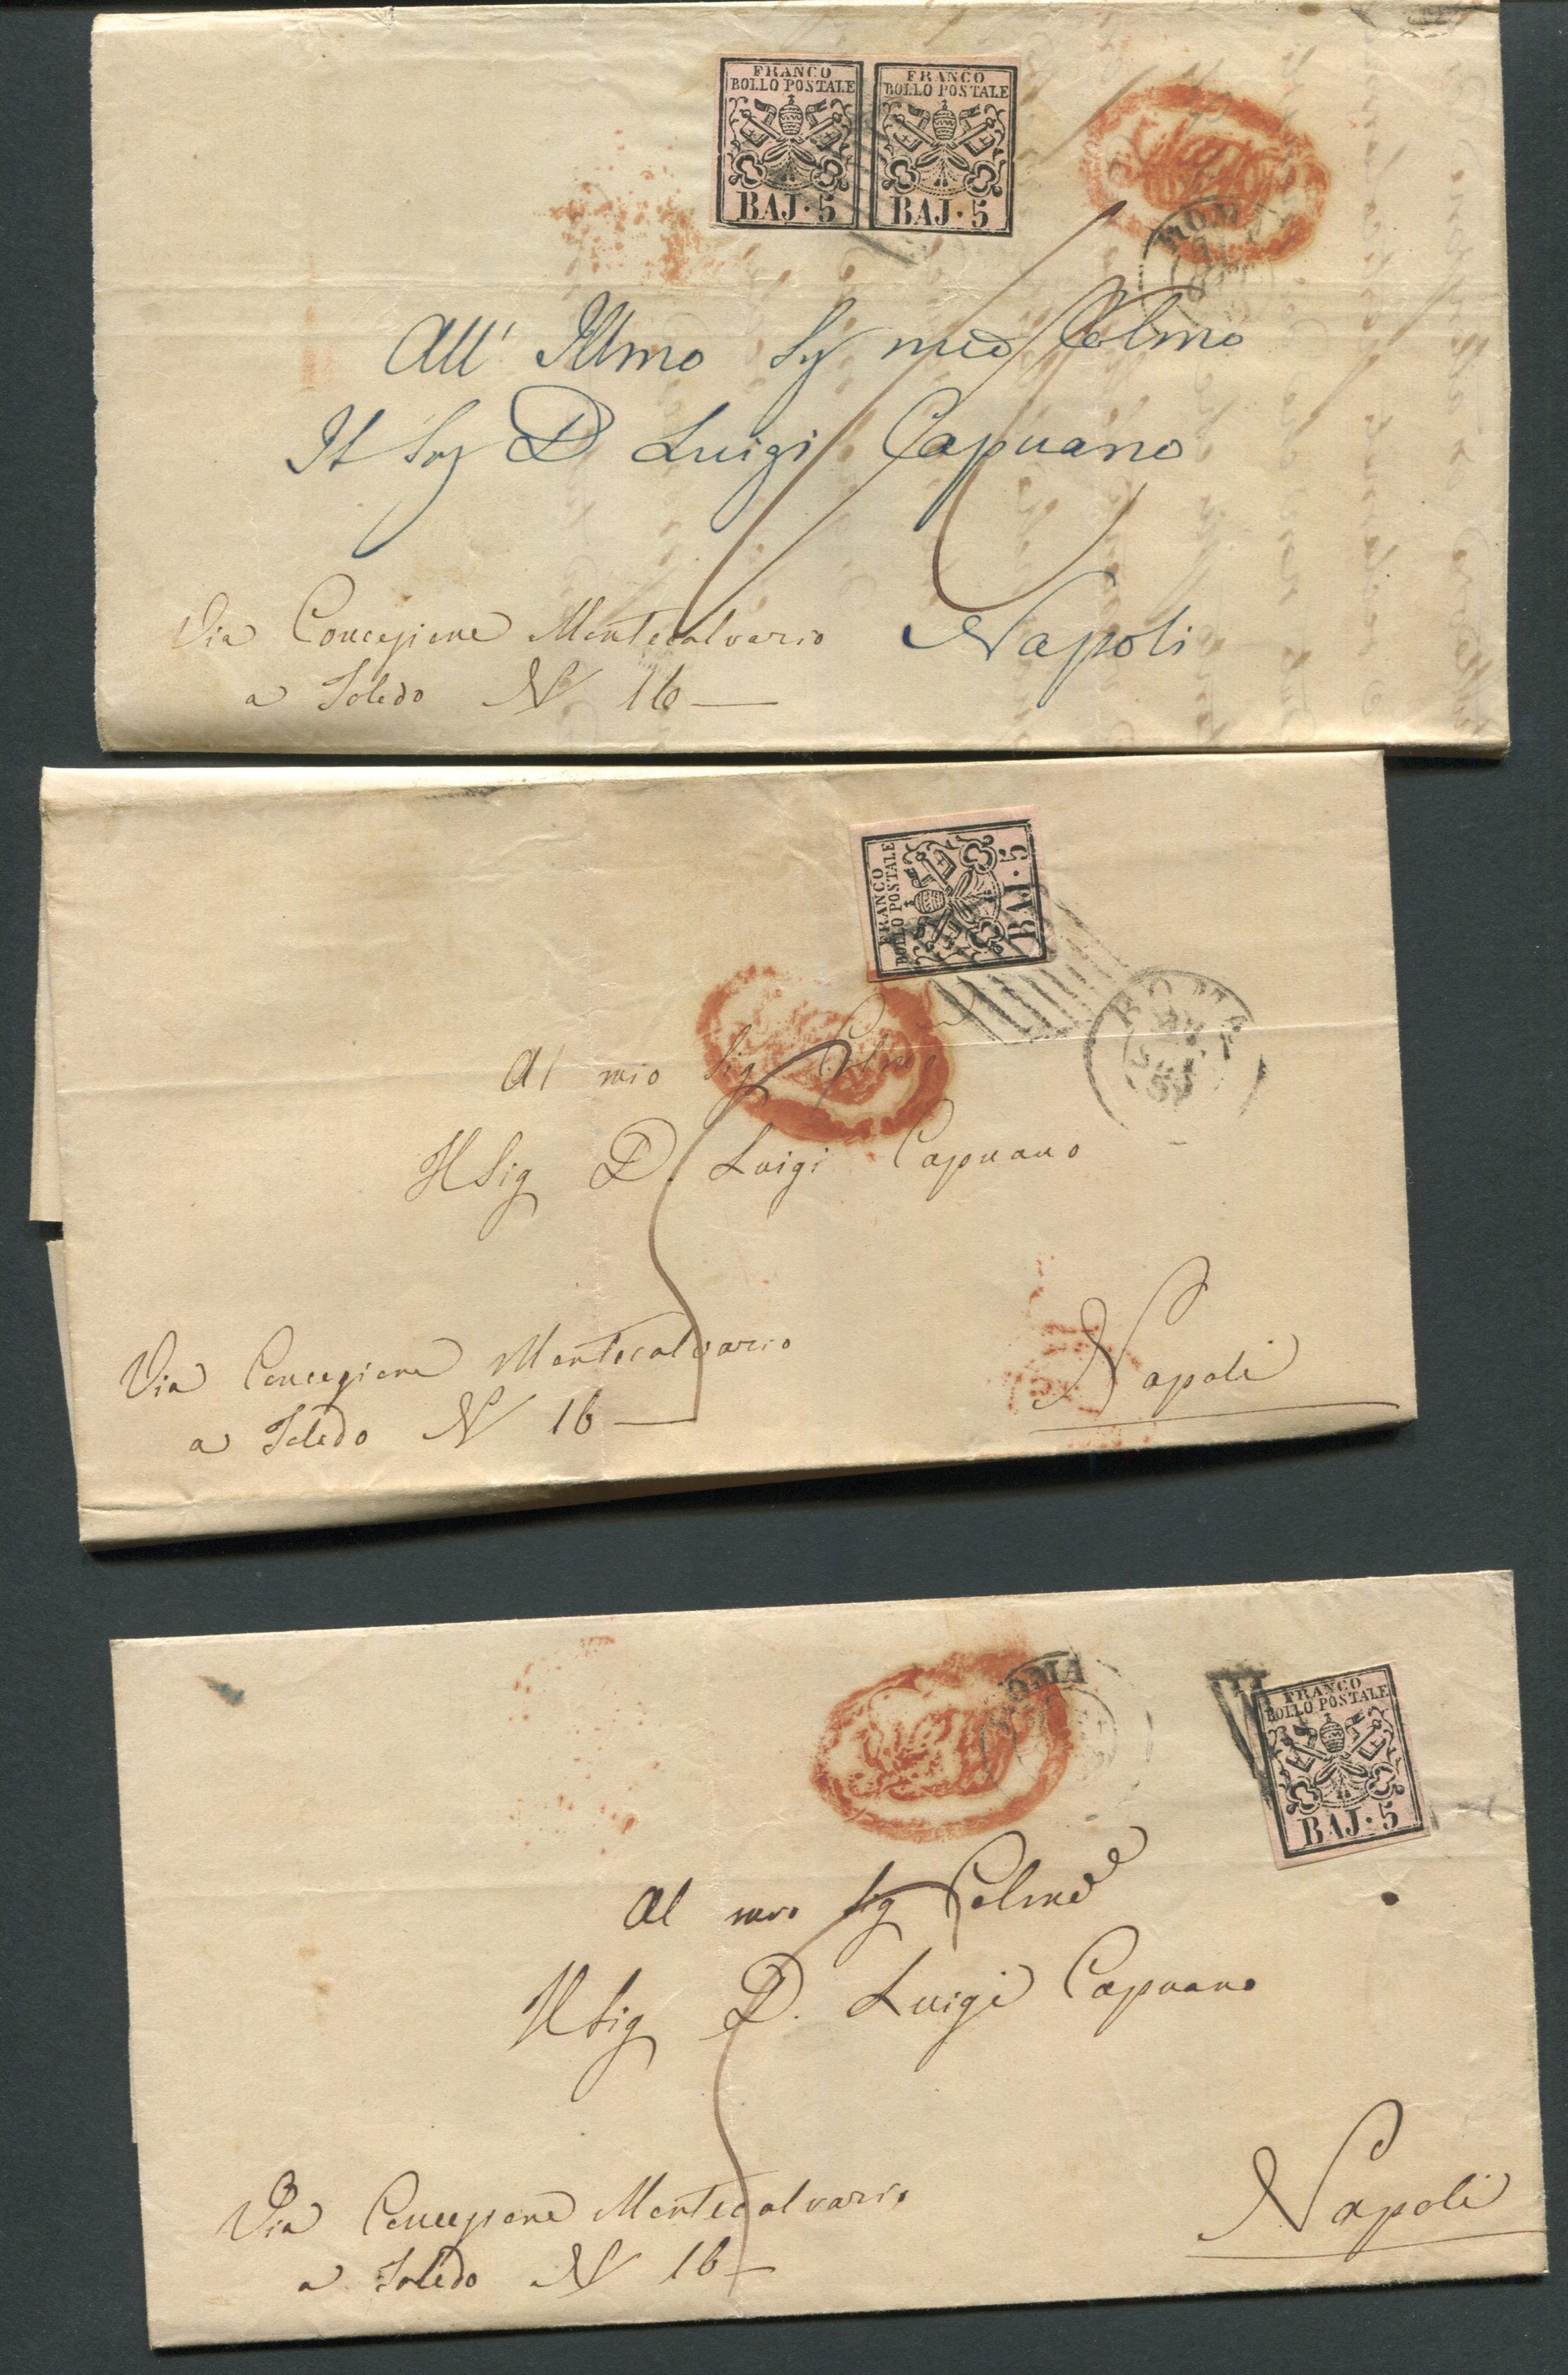 FRANCO
BOLLO POSTALE
BAJ · 5
FRANCO
BOLLO POSTALE
BAJ · 5
ROMA
All' Illmo Sig mio Colmo
Il Sig D Luigi Capuano
Napoli
Via Concezione Montecalvario
a Toledo N 16
FRANCO
BOLLO POSTALE
BAJ · 5
ROMA
Al mio Sig Colmo
Il Sig D. Luigi Capuano
Napoli
Via Concezione Montecalvario
a Toledo N 16
ROMA
FRANCO
BOLLO POSTALE
BAJ · 5
Al mio Sig Colmo
Il Sig D. Luigi Capuano
Napoli
Via Concezione Montecalvario
a Toledo N 16